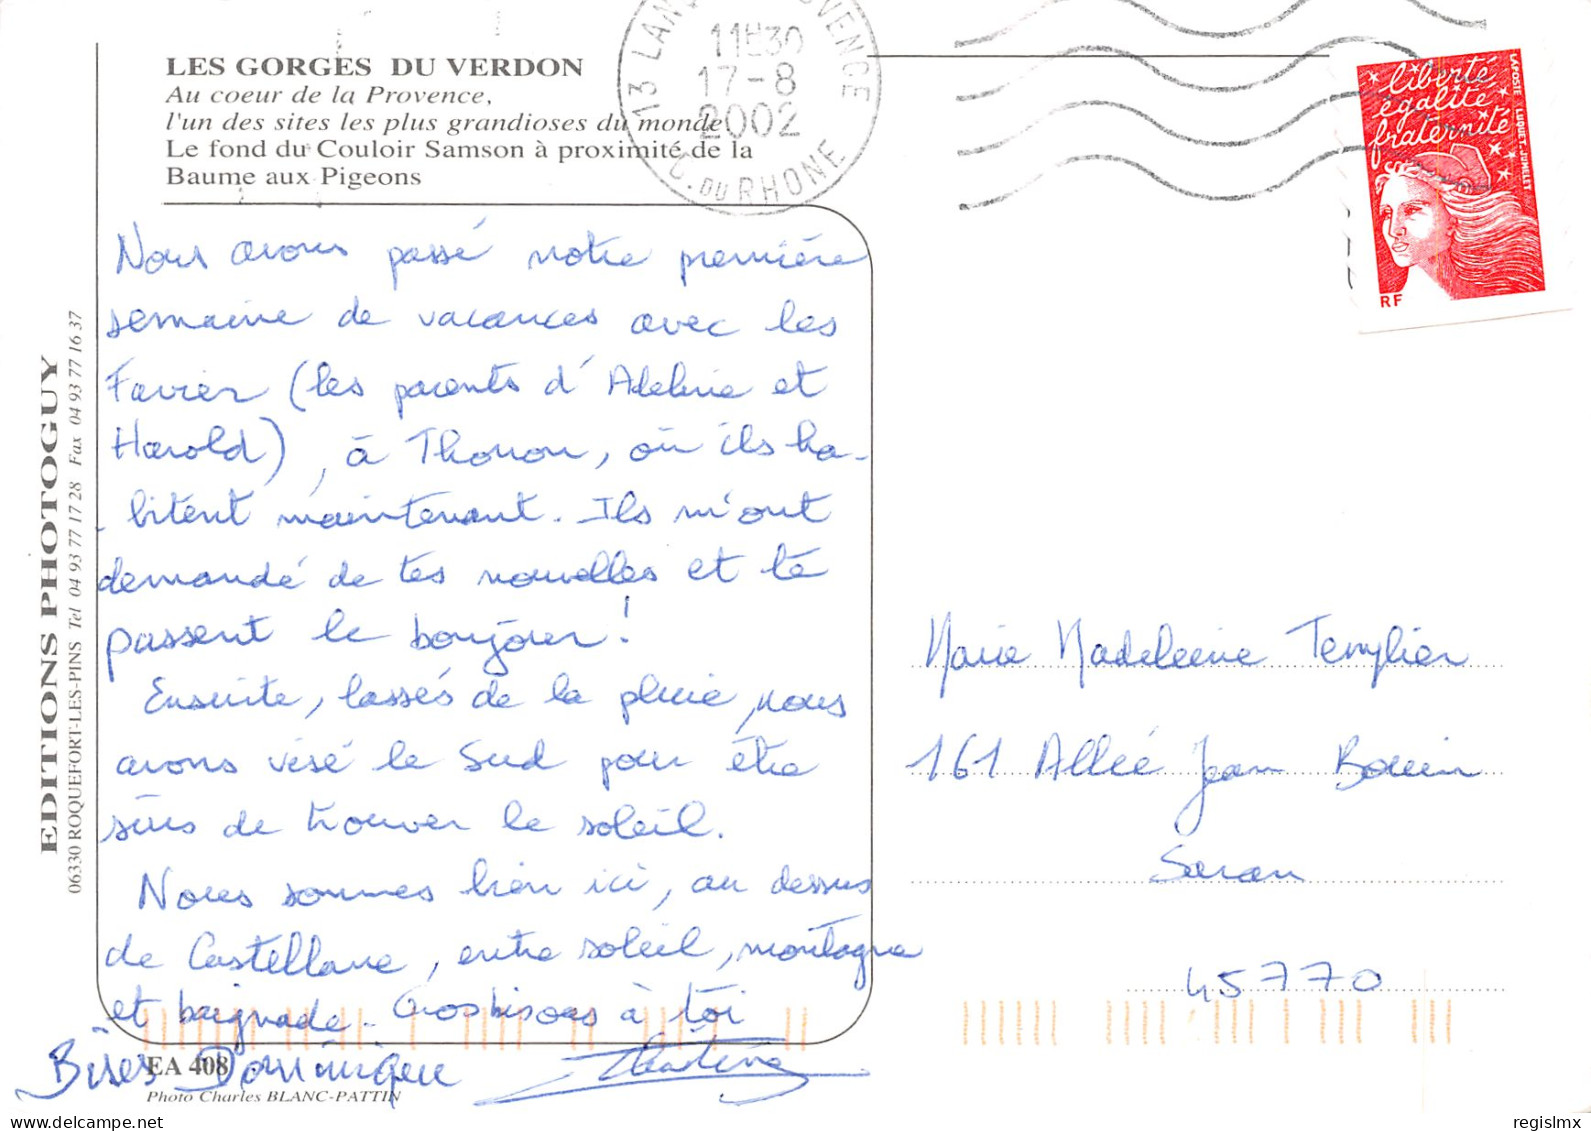 LES GORGES DU VERDON
Au coeur de la Provence,
l'un des sites les plus grandioses du monde
Le fond du Couloir Samson à proximité de la
Baume aux Pigeons
11H30
17-8
2002
13 LAN VENCE
B. DU RHONE
liberté
égalité
fraternité
LA POSTE LUQUET-JUMELET
RF
EDITIONS PHOTOGUY
06330 ROQUEFORT-LES-PINS Tel 04 93 77 17 28 Fax 04 93 77 16 37
Nous avons passé notre première
semaine de vacances avec les
Favier (les parents d'Adeline et
Harold), à Thonon, où ils ha-
-bitent maintenant. Ils m'ont
demandé de tes nouvelles et te
passent le bonjour!
Ensuite, lassés de la pluie, nous
avons visé le Sud pour être
sûrs de trouver le soleil.
Nous sommes bien ici, au dessus
de Castellane, entre soleil, montagne
et baignade. Gros bisous à toi
Bises Dominique Martine
Marie Madeleine Templier
161 Allée Jean Bouin
Saran
45770
EA 408
Photo Charles BLANC-PATTIN
regislmx